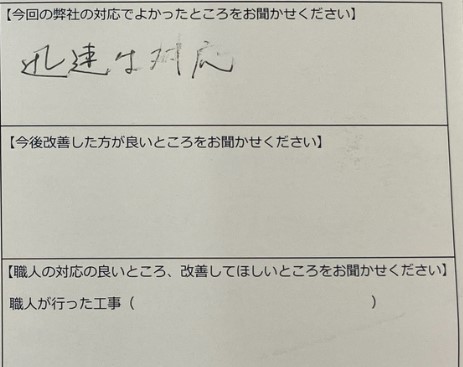 【今回の弊社の対応でよかったところをお聞かせください】
迅速な対応
【今後改善した方が良いところをお聞かせください】
【職人の対応の良いところ、改善してほしいところをお聞かせください】
職人が行った工事（　　　　　　　　　　　　　　　　）